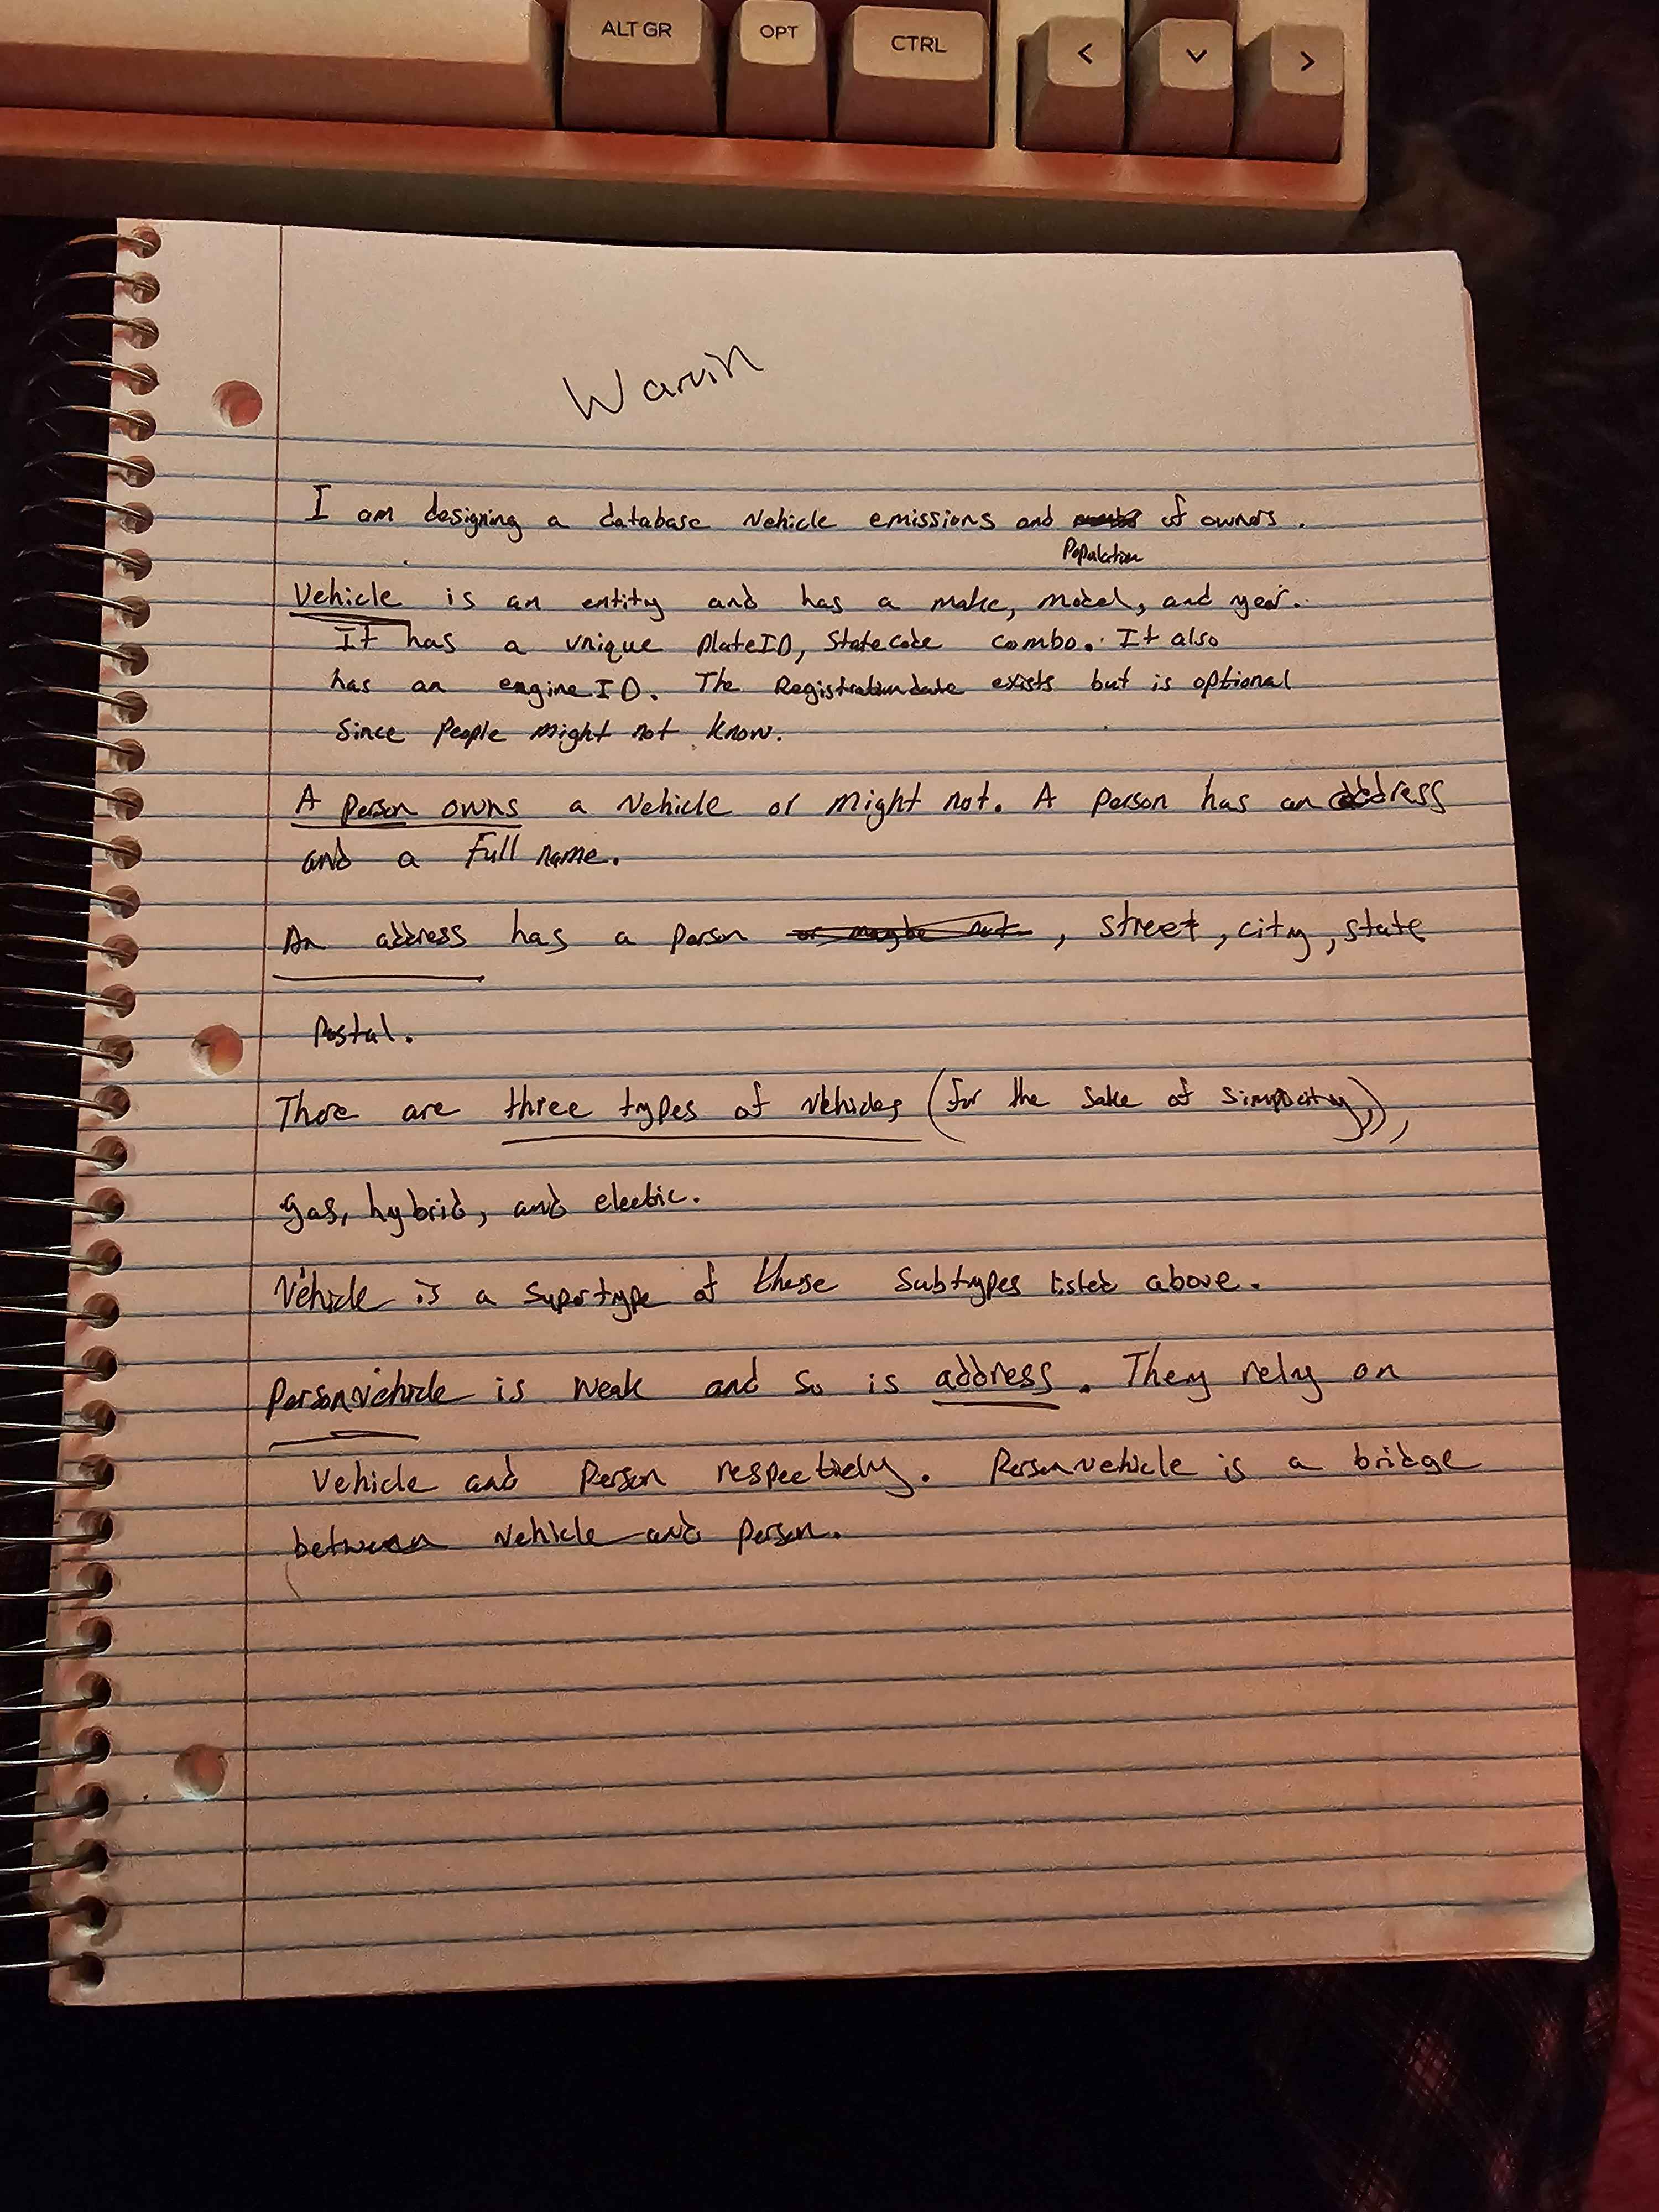 ALT GR OPT CTRL < ˅ >
Warvin
I am designing a database vehicle emissions and of owners.
Population
Vehicle is an entity and has a make, model, and year.
It has a unique PlateID, Statecode combo. It also
has an engineID. The Registrationdate exists but is optional
Since People might not know.
A Person owns a vehicle or might not. A person has an address
and a Full name.
An address has a person or maybe not, street, city, state
Postal.
There are three types of vehicles (for the sake of simplicity,)),
gas, hybrid, and electric.
Vehicle is a supertype of these subtypes listed above.
Personvehicle is weak and so is address. They rely on
Vehicle and Person respectively. Personvehicle is a bridge
between vehicle and person.